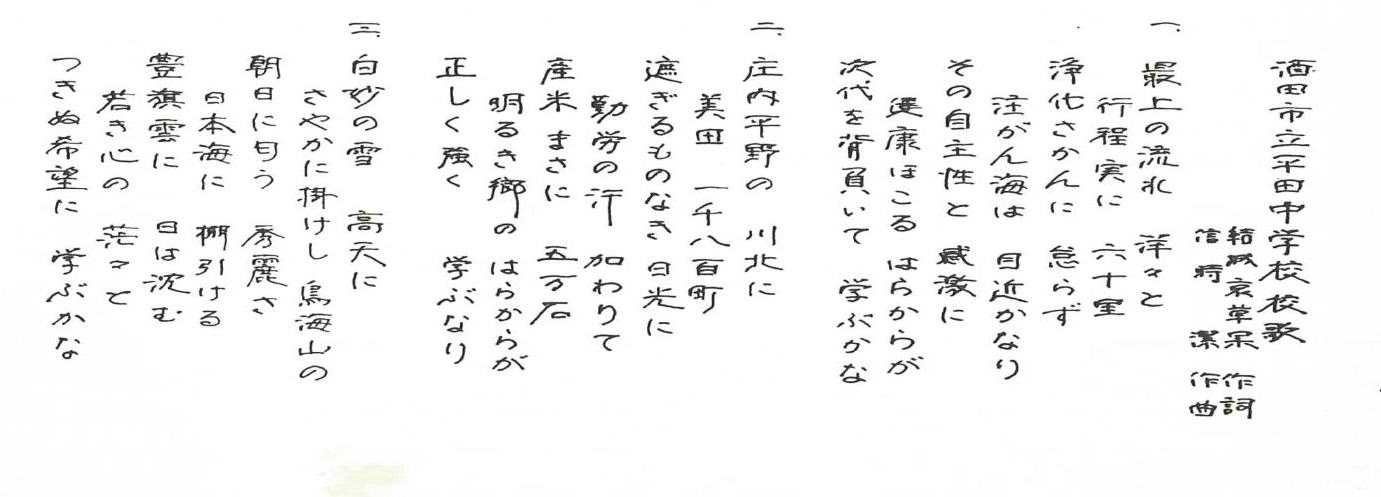 酒田市立平田中学校校歌
結城 哀草果 作詞
信時 潔 作曲
一、最上の流れ 洋々と
行程実に 六十里
浄化さかんに 怠らず
注がん海は 目近かなり
その自主性と 感激に
健康ほこる はらからが
次代を背負いて 学ぶかな
二、庄内平野の 川北に
美田 一千八百町
遮ぎるものなき 日光に
勤労の汗 加わりて
産米まさに 五万石
明るき郷の はらからが
正しく強く 学ぶなり
三、白妙の雪 高天に
さやかに掛けし 鳥海山の
朝日に匂う 秀麗さ
日本海に 棚引ける
豊旗雲に 日は沈む
若き心の 茫々と
つきぬ希望に 学ぶかな